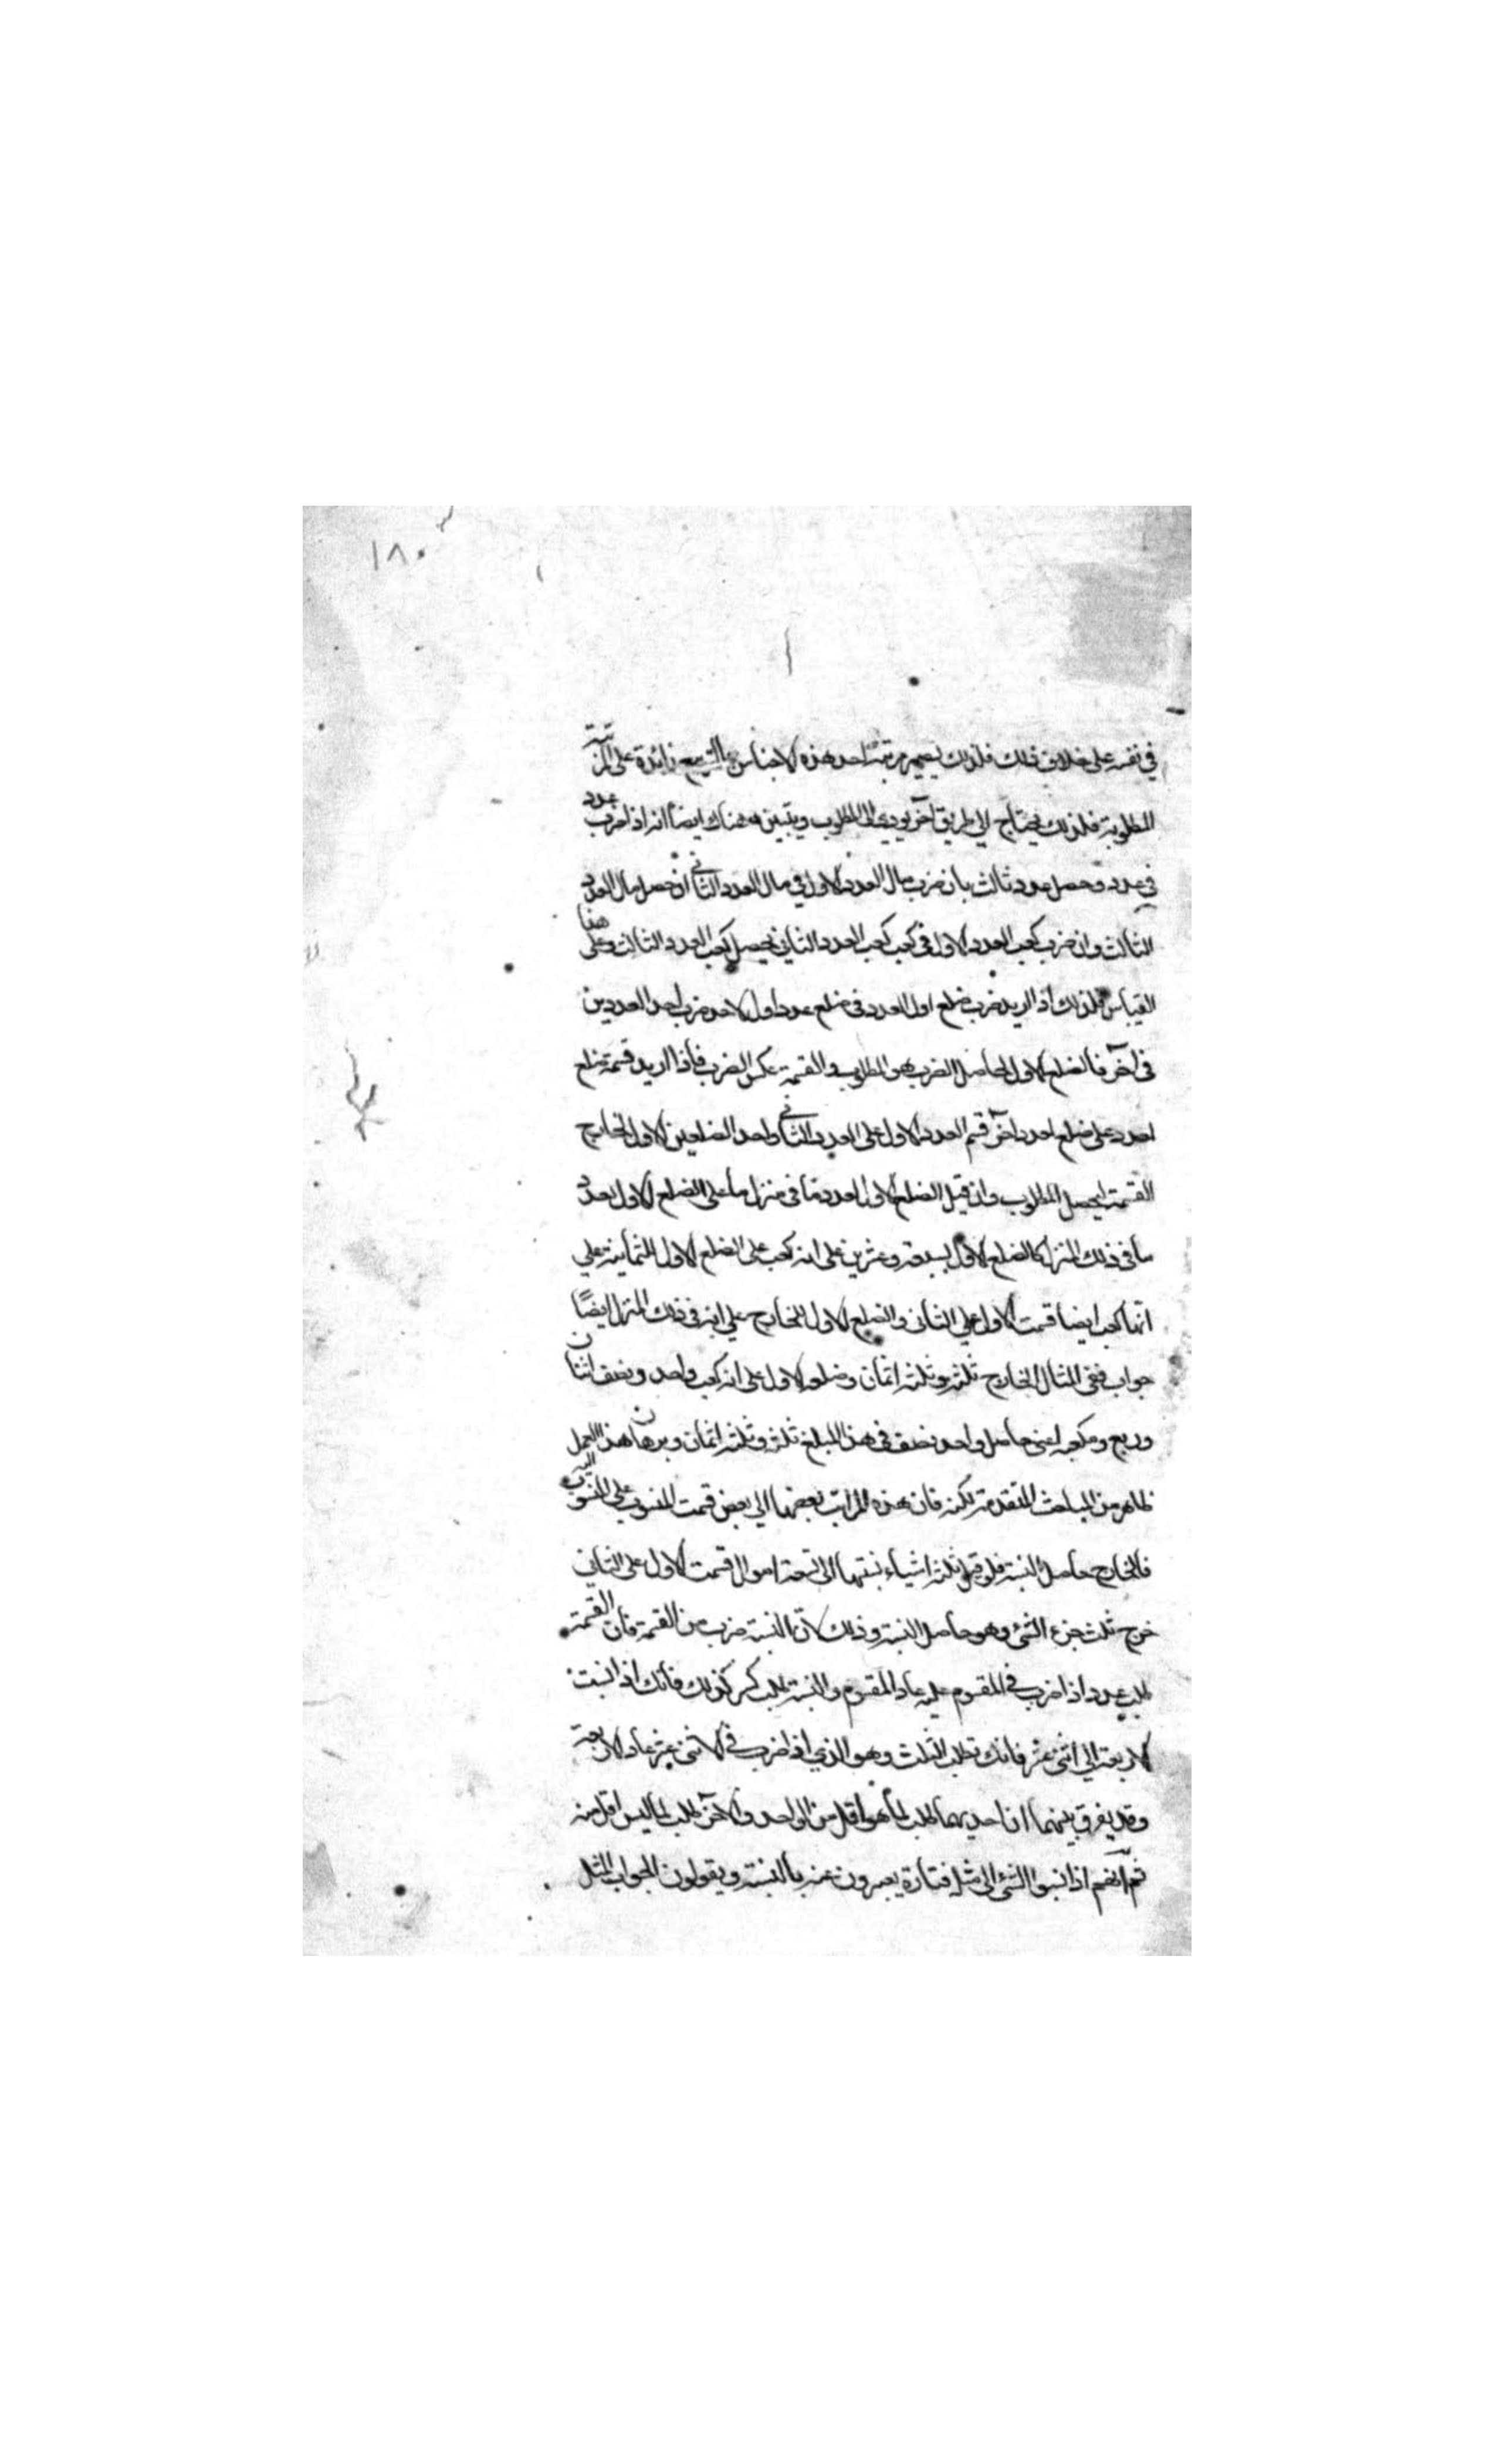 ١٨٠
في نفسه على خلاف ذلك فلذلك يصير مرتبة احد هذه الاجناس بالتربيع زائدة على المرتبة
المطلوبة فلذلك يحتاج الى طريق آخر يودي الى المطلوب ويتبين هناك ايضا انه اذا ضرب عدد
في عدد وحصل عدد ثالث بان ضرب مال العدد الاول في مال العدد الثاني اذ حصل مال العدد
الثالث وان ضرب كعب العدد الاول في كعب كعب العدد الثاني يحصل كعب العدد الثالث وعلى هذا
القياس فلذلك اذا اريد ضرب ضلع اول العدد في ضلع عدد اول لاخر ضرب احد العددين
في آخر فالضلع الاول لحاصل الضرب هو المطلوب والقسمة عكس الضرب فاذا اريد قسمة ضلع
احدد على ضلع احدد آخر قسم العدد الاول على العدد الثاني واحد الضلعين الاول لخارج
القسمة ليحصل المطلوب وان قيل الضلع الاول لعدد ما في منزل ما على الضلع الاول لعدد
ما في ذلك المنزل كالضلع الاول لسبعة وعشرين على انه كعب على الضلع الاول للثمانية على
انها كعب ايضا قسمت الاول على الثاني والضلع الاول للخارج على انه في ذلك المنزل ايضًا
جواب ففي المثال الخارج ثلثة وثلثة اثمان وضلعه الاول على انه كعب واحد ونصف اثنان
وربع ومكعبه اعني حاصل واحد ونصف في هذا المبلغ ثلثة وثلثة اثمان وبرهان هذا العمل
ظاهر من المباحث المتقدمة لكنه فان هذه المراتب بعضها الى بعض قسمت المنسوب على المنسوب اليه
فالخارج حاصل النسبة فلو قيل ثلثة اشياء نسبتها الى تسعة اموال قسمت الاول على الثاني
خرج ثلث جزء الشئ وهو حاصل النسبة وذلك لان النسبة ضرب من القسمة فان القسمة
طلب عدد اذا ضرب في المقسوم عليه عاد المقسوم والنسبة طلب كسر كذلك فانك اذا نسبت
الاربعة الى اثنى عشر فانك تطلب الثلث وهو الذي اذا ضرب في الاثنى عشر عاد الاربعة
وقد يفرق بينهما ان احديهما طلب لما هو اقل من الواحد والآخر طلب لما ليس اقل منه
ثم انهم اذا نسبوا الشئ الى مثله فتارة يعبرون عنه بالنسبة ويقولون الجواب المثل